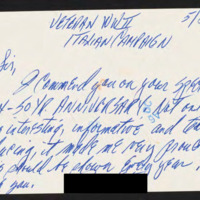 VETERAN WWII 5/
ITALIAN CAMPAIGN
Sir,
I commend you on your
50 YR ANNIVERSARY
interesting, informative and
it made me very proud
should be shown every year
you.